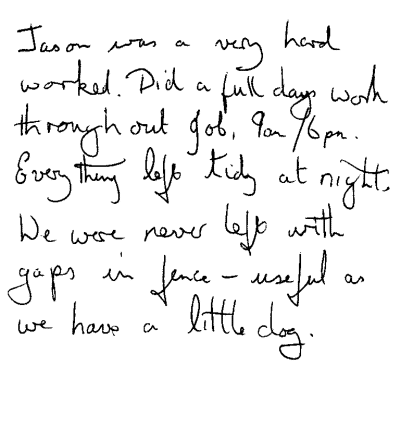 Jason was a very hard
worked. Did a full days work
throughout job, 9am/6pm.
Everything left tidy at night.
We were never left with
gaps in fence - useful as
we have a little dog.